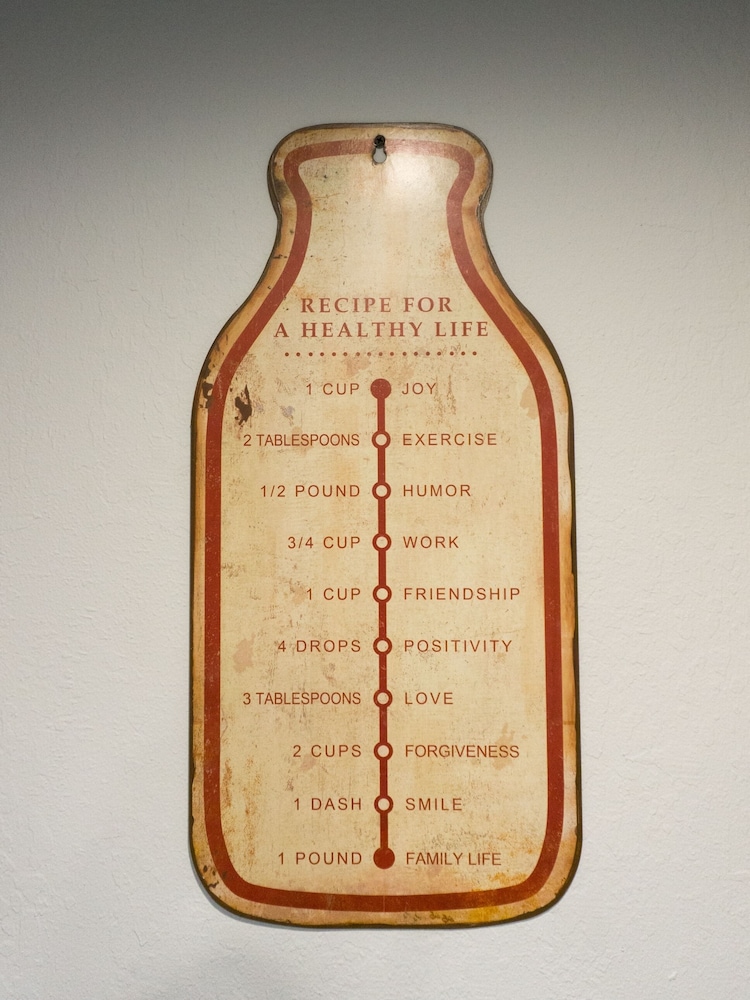 RECIPE FOR
A HEALTHY LIFE
1 CUP JOY
2 TABLESPOONS EXERCISE
1/2 POUND HUMOR
3/4 CUP WORK
1 CUP FRIENDSHIP
4 DROPS POSITIVITY
3 TABLESPOONS LOVE
2 CUPS FORGIVENESS
1 DASH SMILE
1 POUND FAMILY LIFE